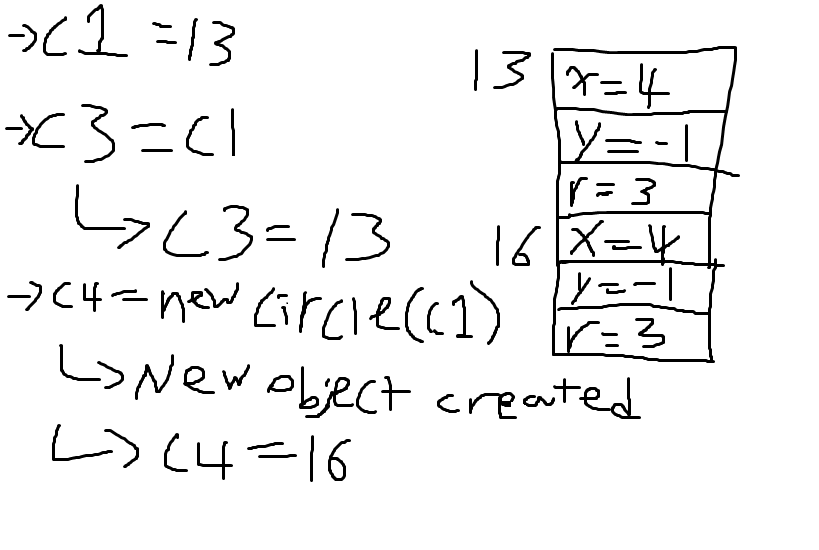 →c1 = 13
→c3 = c1
↳ c3 = 13
→c4 = new circle(c1)
↳ New object created
↳ c4 = 16
13 x = 4
y = -1
r = 3
16 x = 4
y = -1
r = 3